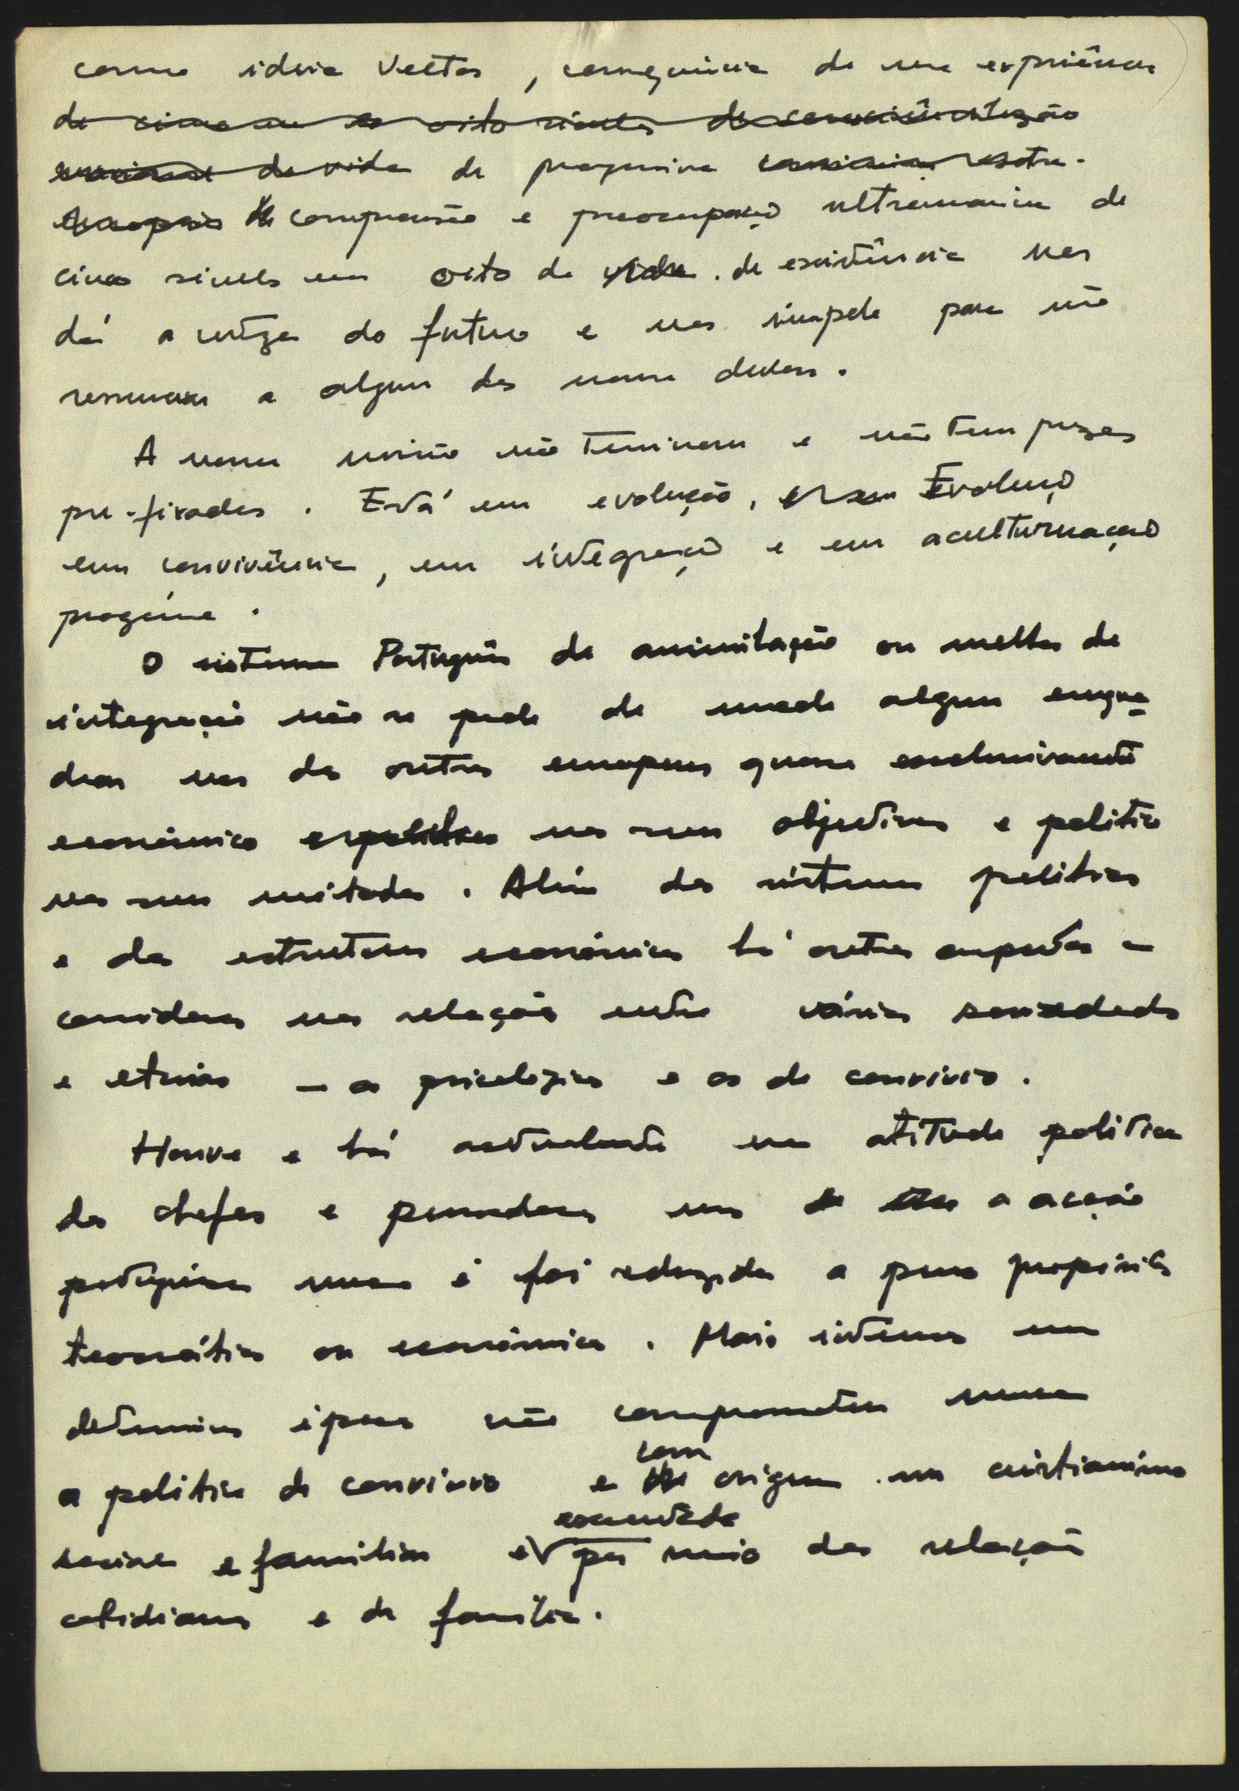 como ideia vectos, consequência de uma experiência
de cinco ou oito séculos de
de vida de progressiva
de compreensão e preocupação ultramarina de
cinco séculos em oito de vida. de existência nos
dá a certeza do futuro e nos impele para não
renunciar a algum dos nossos deveres.
A nossa missão não terminou e não tem prazos
pre-fixados. Está em evolução, Evolução
em convivência, em integração e em aculturação
O sistema Português de assimilação ou melhor de
integração não se pode de modo algum enqua-
drar nos de outros europeus quase exclusivamente
económico nos seus objectivos e politico
nos seus métodos. Além dos sistemas politicos
e das estruturas económicas há outros aspectos a
considerar nas relações entre várias sociedades
e etnias — os psicológicos e os de convivio.
Houve e há actualmente uma atitude politica
dos chefes e pensadores mas a acção
portuguesa nunca é foi reduzida a puros propósitos
teocráticos ou económicos. Mais intensos em
determinadas épocas não comprometeu nunca
a politica de convivio e com origem no cristianismo
social e familiar e executada por meio das relações
cotidianas e de familia.